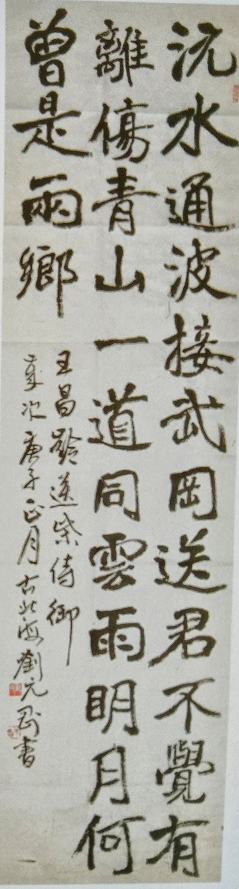 沅水通波接武岡送君不覺有
離傷青山一道同雲雨明月何
曾是兩鄉
王昌齡送柴侍御
歲次庚子正月古北海劉元書